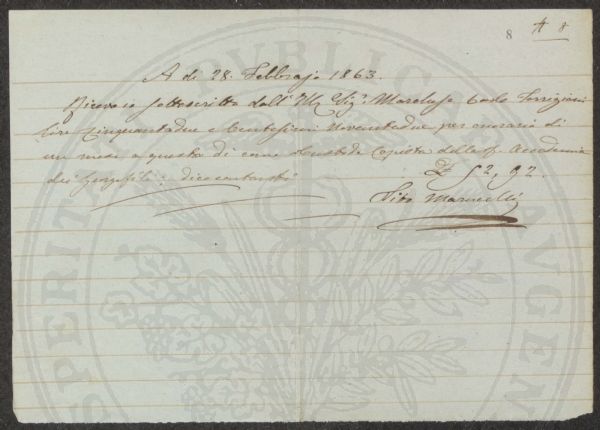 8 # 8
A dì 28. Febbrajo 1863.
Ricevo io sottoscritto dall' Ill. Sig.r Marchese Carlo Torrigiani
lire cinquantadue e Centesimi novantadue per onorario di
un mese a questo dì come Custode Copista della R. Accademia
dei Georgofili; dico contanti
£ 52, 92.
Vito Mannelli
PROSPERITATI PUBLICAE AUGENDAE